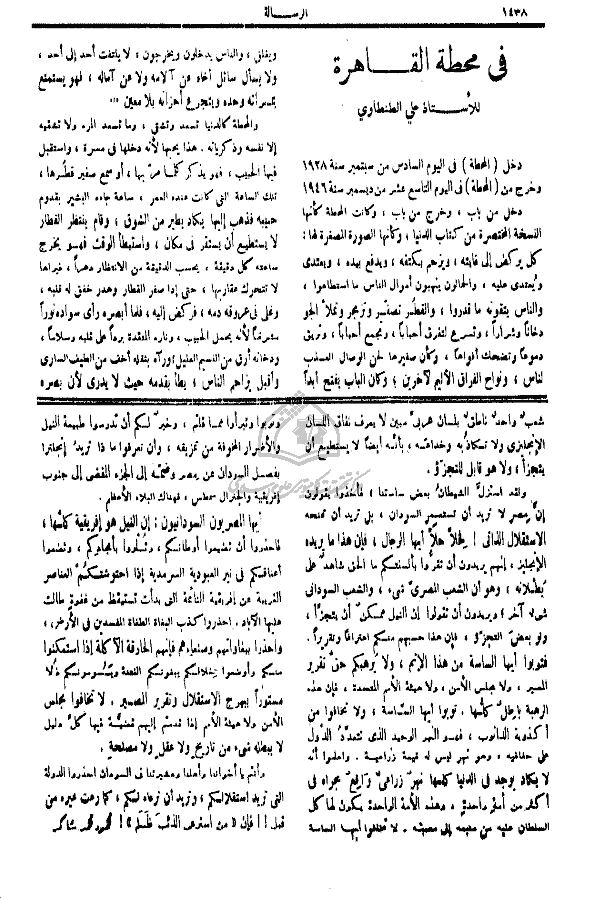 ١٤٣٨
الرسالة
في محطة القاهرة
للأستاذ علي الطنطاوي
دخل (المحطة) في اليوم السادس من سبتمبر سنة ١٩٢٨
وخرج من (المحطة) في اليوم التاسع عشر من ديسمبر سنة ١٩٤٦
دخل من باب، وخرج من باب، وكانت المحطة كأنها
النسخة المختصرة من كتاب الدنيا، وكأنها الصورة المصغرة لها:
كل يركض إلى غايته، ويزحم بكتفه، ويدفع بيده، ويعتدي
ويُعتدى عليه، والحمالون ينهبون أموال الناس ما استطاعوا،
والناس يتقونه ما قدروا، والقُطُر تصفّر وتزمجر وتملأ الجو
دخاناً وشراراً، وتسرع لتفرق أحباباً، وتجمع أحباباً، وتريق
دموعاً وتضحك أفواهاً، وكأن صفيرها لحن الوصال المسذب
لناس، ونواح الفراق الأليم لآخرين؛ وكان الباب يفتح أبداً
ويغلق، والناس يدخلون ويخرجون، لا يلتفت أحد إلى أحد،
ولا يسأل سائل أخاه عن آلامه ولا عن آماله، فهو يستمتع
بمسراته وحده ويتجرع أحزانه بلا معين ...
والمحطة كالدنيا تسعد وتشقي، وما تسعد المرء ولا تشقيه
إلا نفسه وذكرياته. هذا يحبها لأنه دخلها في مسرة، واستقبل
فيها الحبيب، فهو يذكر كلما مرّ بها، أو سمع صفير قطُرها،
تلك الساعة التي كانت عنده العمر، ساعة جاءه البشير بقدوم
حبيبه فذهب إليها يكاد يطير من الشوق، وقام ينتظر القطار
لا يستطيع أن يستقر في مكان، واستبطأ الوقت فهو يخرج
ساعته كل دقيقة، يحسب الدقيقة من الانتظار دهراً، فيراها
لا تتحرك عقاربها، حتى إذا صفر القطار وهدر خفق له قلبه،
وغلى في عروقه دمه، فركض إليه، فلما أبصره رأى سواده نوراً
لأنه يحمل الحبيب، وناره المتقدة برداً على قلبه وسلاماً،
ودخانه أرق من النسيم العليل؛ ورآه بثقله أخف من الطيف الساري
وأقبل يزاحم الناس، يطأ بقدمه حيث لا يدري لأن بصره
شعبٌ واحدٌ ناطقٌ بلسان عربيّ مبين لا يعرف نفاق اللسان
الإنجليزي ولا استكاذبه وخداعته، بأنه أيضاً لا يستطيع أن
يتجزأ، ولا هو قابل للتجزؤ.
ولقد استزلَّ الشيطانُ بعض ساستنا، فأخذوا يقولون
إنّ مصر لا تريد أن تستعمر السودان، بل تريد أن تمنحه
الاستقلال الذاتي! فمهلاً مهلاً أيها الرجال، فإن هذا ما يريده
الإنجليز، إنهم يريدون أن تقروا بألسنتكم ما الحق شاهدٌ على
بُطلانه، وهو أن الشعب المصريّ شيء، والشعب السوداني
شيء آخر؛ ويريدون أن تقولوا إن النيل ممكنٌ أن يتجزأ،
ولو بعضَ التجزؤ، فإن هذا حسبهم منكم اعترافاً وتقريراً.
فتوبوا أيها الساسة من هذا الإثم، ولا يرهبكم حقّ تقرير
المصير، ولا مجلس الأمن، ولا هيئة الأمم المتحدة، فإن هذه
الرهبة باطلٌ كلّها. توبوا أيها السّاسة، ولا تخافوا من
أكذوبة الدانوب، فهو النهر الوحيد الذي تتعدّدُ الدُّول
على حفافيه، وهو نهر ليس له قيمة زراعية. واعلموا أنه
لا يكاد يوجد في الدنيا كلها نهرٌ زراعيٌّ واقعٌ مجراه في
أكثر من أمةٍ واحدةٍ، وهذه الأمة الواحدة يكون لها كل
السلطان عليه من منبعه إلى مصبّه. لا تخافوا أيها الساسة
وتوبوا وتبرأوا مما قلتم، وخيرٌ لكم أن تدرسوا طبيعة النيل
والأضرار المخوفة من تمزيقه، وأن تعرفوا ما ذا تريدُ إنجلترا
بفصل السودان عن مصر وضمِّه إلى الجزء المفضي إلى جنوب
إفريقية والجنرال سمطس، فهناك البلاء الأعظم.
أيها المصريون السودانيون: إن النيل هو إفريقية كلّها،
فاحذروا أن تضيعوا أوطانكم، وتُلحدوا بأمجادكم، وتضعوا
أعناقكم في نير العبودية السرمدية إذا احتوشتكُم العناصر
الغريبة عن إفريقية النائمة التي بدأت تستيقظ من غفوةٍ طالت
عليها الآباد. احذروا كذب البغاة الطغاة المفسدين في الأرض،
واحذروا ببغاواتهم وصنيعاءهم فإنهم الحارقة الآكلة إذا استمكنوا
منكم وأوضعوا خِلالكم يبغونكم الفتنة ويسُومونكم ذُلاًّ
مستوراً ببهرج الاستقلال وتقرير المصير. لا تخافوا مجلس
الأمن ولا هيئة الأمم إذا قدمتم إليهم قضيّة فيها كلّ دليل
لا يبطله شيء من تاريخٍ ولا عقلٍ ولا مصلحةٍ.
وأنتم يا أخواننا وأهلنا وعشيرتنا في السودان احذروا الدولة
التي تريد استقلالكم، وتريد أن ترعاه لكم، كما رعت غيره من
قبل!! فإن « من استرعى الذئب ظَلَم »! محمود محمد شاكر